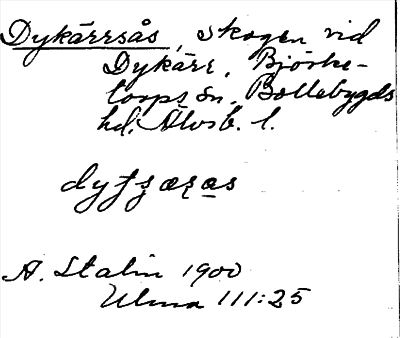 Dykärrsås, skogen vid
Dykärr, Björke-
torps sn. Bollebygds
hd, Älvsb. l.
A. Stalin 1900
Ulma 111:25